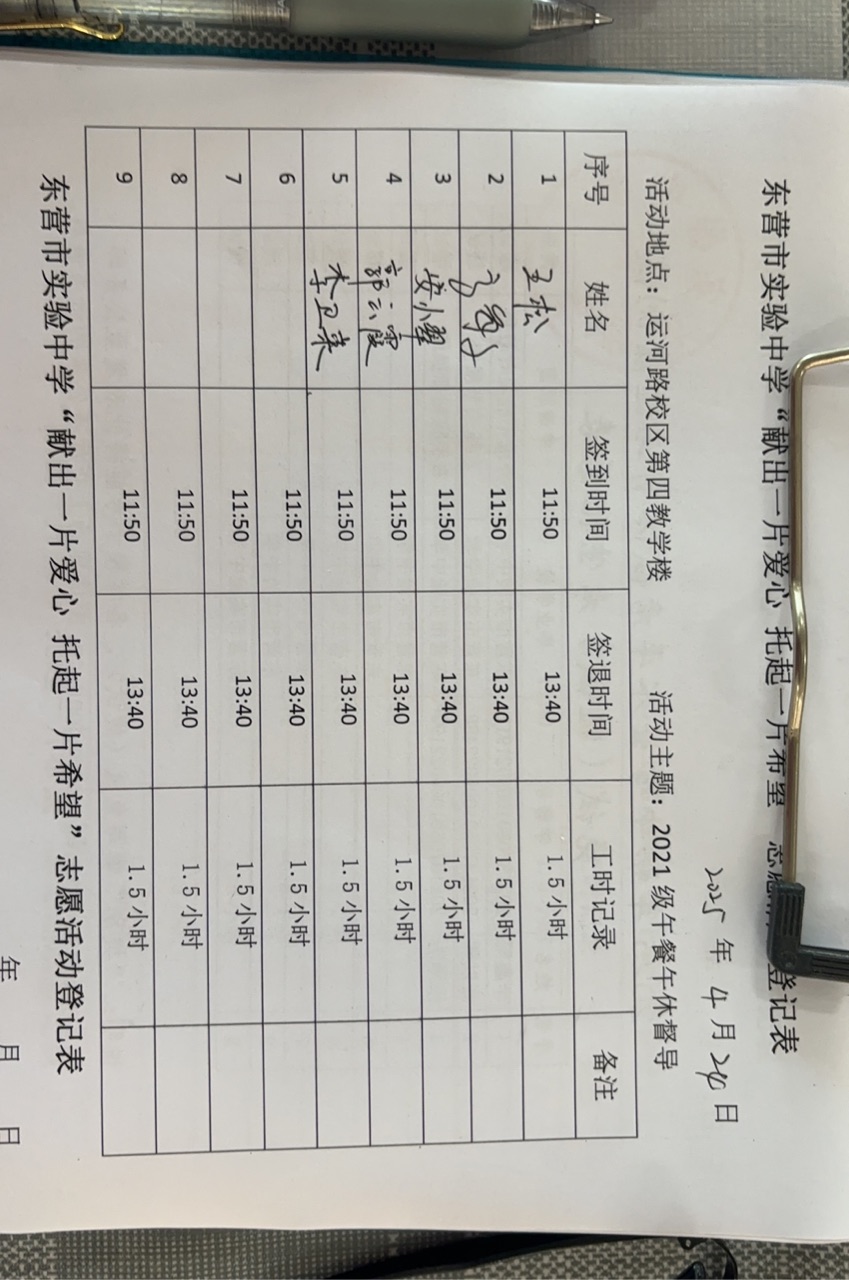 东营市实验中学“献出一片爱心 托起一片希望”志愿活动登记表
2025年 4月24日
活动地点：运河路校区第四教学楼 活动主题：2021级午餐午休督导
序号 姓名 签到时间 签退时间 工时记录 备注
1 王松 11:50 13:40 1.5小时
2 11:50 13:40 1.5小时
3 安小翠 11:50 13:40 1.5小时
4 郭云霞 11:50 13:40 1.5小时
5 李卫东 11:50 13:40 1.5小时
6 11:50 13:40 1.5小时
7 11:50 13:40 1.5小时
8 11:50 13:40 1.5小时
9 11:50 13:40 1.5小时
东营市实验中学“献出一片爱心 托起一片希望”志愿活动登记表
年 月 日